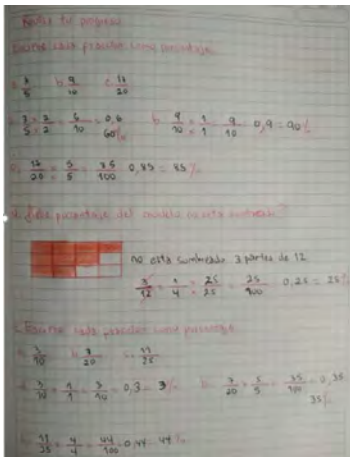 Revisa tu progreso
Escribe cada fracción como porcentaje
a. 3/5 b. 9/10 c. 17/20
3/5 × 2/2 = 6/10 = 0,6 60% b. 9/10 × 1/1 = 9/10 = 0,9 = 90%
17/20 × 5/5 = 85/100 0,85 = 85%
porcentaje del modelo no está sombreado?
no esta sombreado 3 partes de 12
3/12 = 1/4 × 25/25 = 25/100 0,25 = 25%
Escribe cada fracción como porcentaje
a. 3/10 b. 7/20 c. 11/25
3/10 × 1/1 = 3/10 = 0,3 = 3% b. 7/20 × 5/5 = 35/100 = 0,35
35%
11/25 × 4/4 = 44/100 = 0,44 = 44%